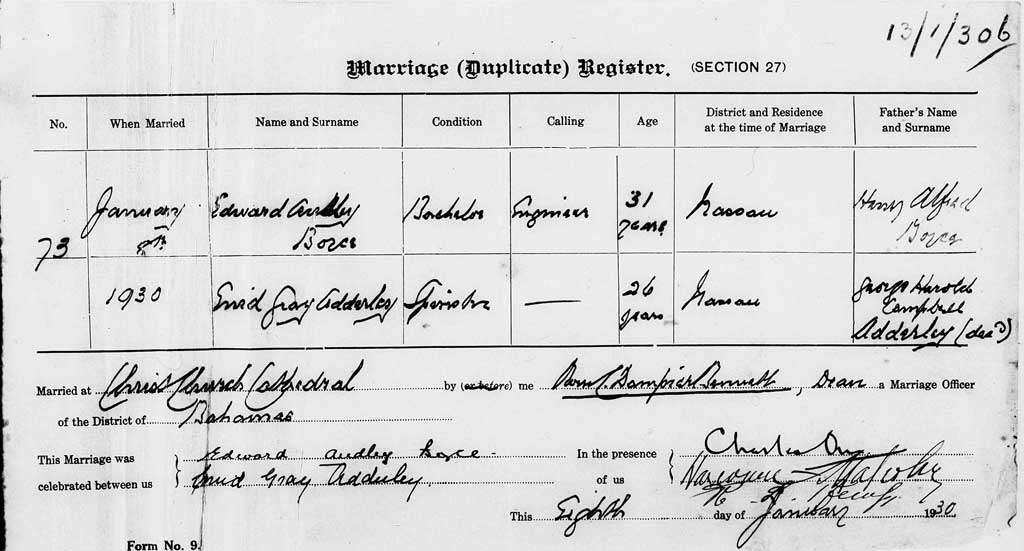 13/1/30 6
Marriage (Duplicate) Register. (SECTION 27)
No. When Married Name and Surname Condition Calling Age District and Residence at the time of Marriage Father's Name and Surname
73 January 8th Edward Audley Boyce Bachelor Engineer 31 years Nassau Henry Alfred Boyce
1930 Enid Gray Adderley Spinster — 26 years Nassau George Harold Campbell Adderley (dec'd)
Married at Christ Church Cathedral by (or before) me Dampier Bennett, Dean a Marriage Officer
of the District of Bahamas
This Marriage was celebrated between us Edward Audley Boyce
Enid Gray Adderley
In the presence of us Charles
Malcolm
This Eighth day of January 1930
Form No. 9.